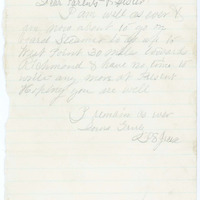 Dear Parents & Sister
I am well as ever &
am now about to go on
board Steamer to go up to
West Point 30 miles towards
Richmond & have no time to
write any more at present
Hoping you are well
I remain as ever
Yours Truly